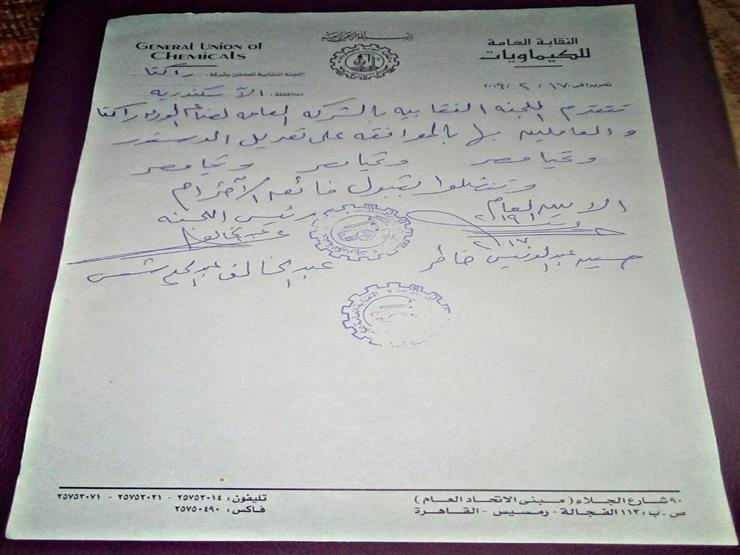 بسم الله الرحمن الرحيم
GENERAL UNION OF
CHEMICALS
النقابة العامة
للكيماويات
اللجنة النقابية للعاملين بشركة: راكتا
محافظة: الاسكندرية
تحريرا فى: ١٧ / ٢ / ٢٠١٩
تتقدم اللجنه النقابيه بالشركه العامه لصناعة الورق راكتا
والعاملين بها بالموافقه على تعديل الدستور
وتحيا مصر وتحيا مصر وتحيا مصر
وتفضلوا بقبول فائق الاحترام
الامين العام
رئيس اللجنه
٢٠١٩/٢/١٧
سيد عبد الونيس خاطر
عبد الخالق عبد الحكم شمس
٩٠ شارع الجلاء ( مبنى الاتحاد العام )
ص . ب : ١١٣ الفجالة - رمسيس - القاهرة
تليفون : ٢٥٧٥٣٠١٤ - ٢٥٧٥٣٠٢١ - ٢٥٧٥٣٠٧١
فاكس : ٢٥٧٥٠٤٩٠